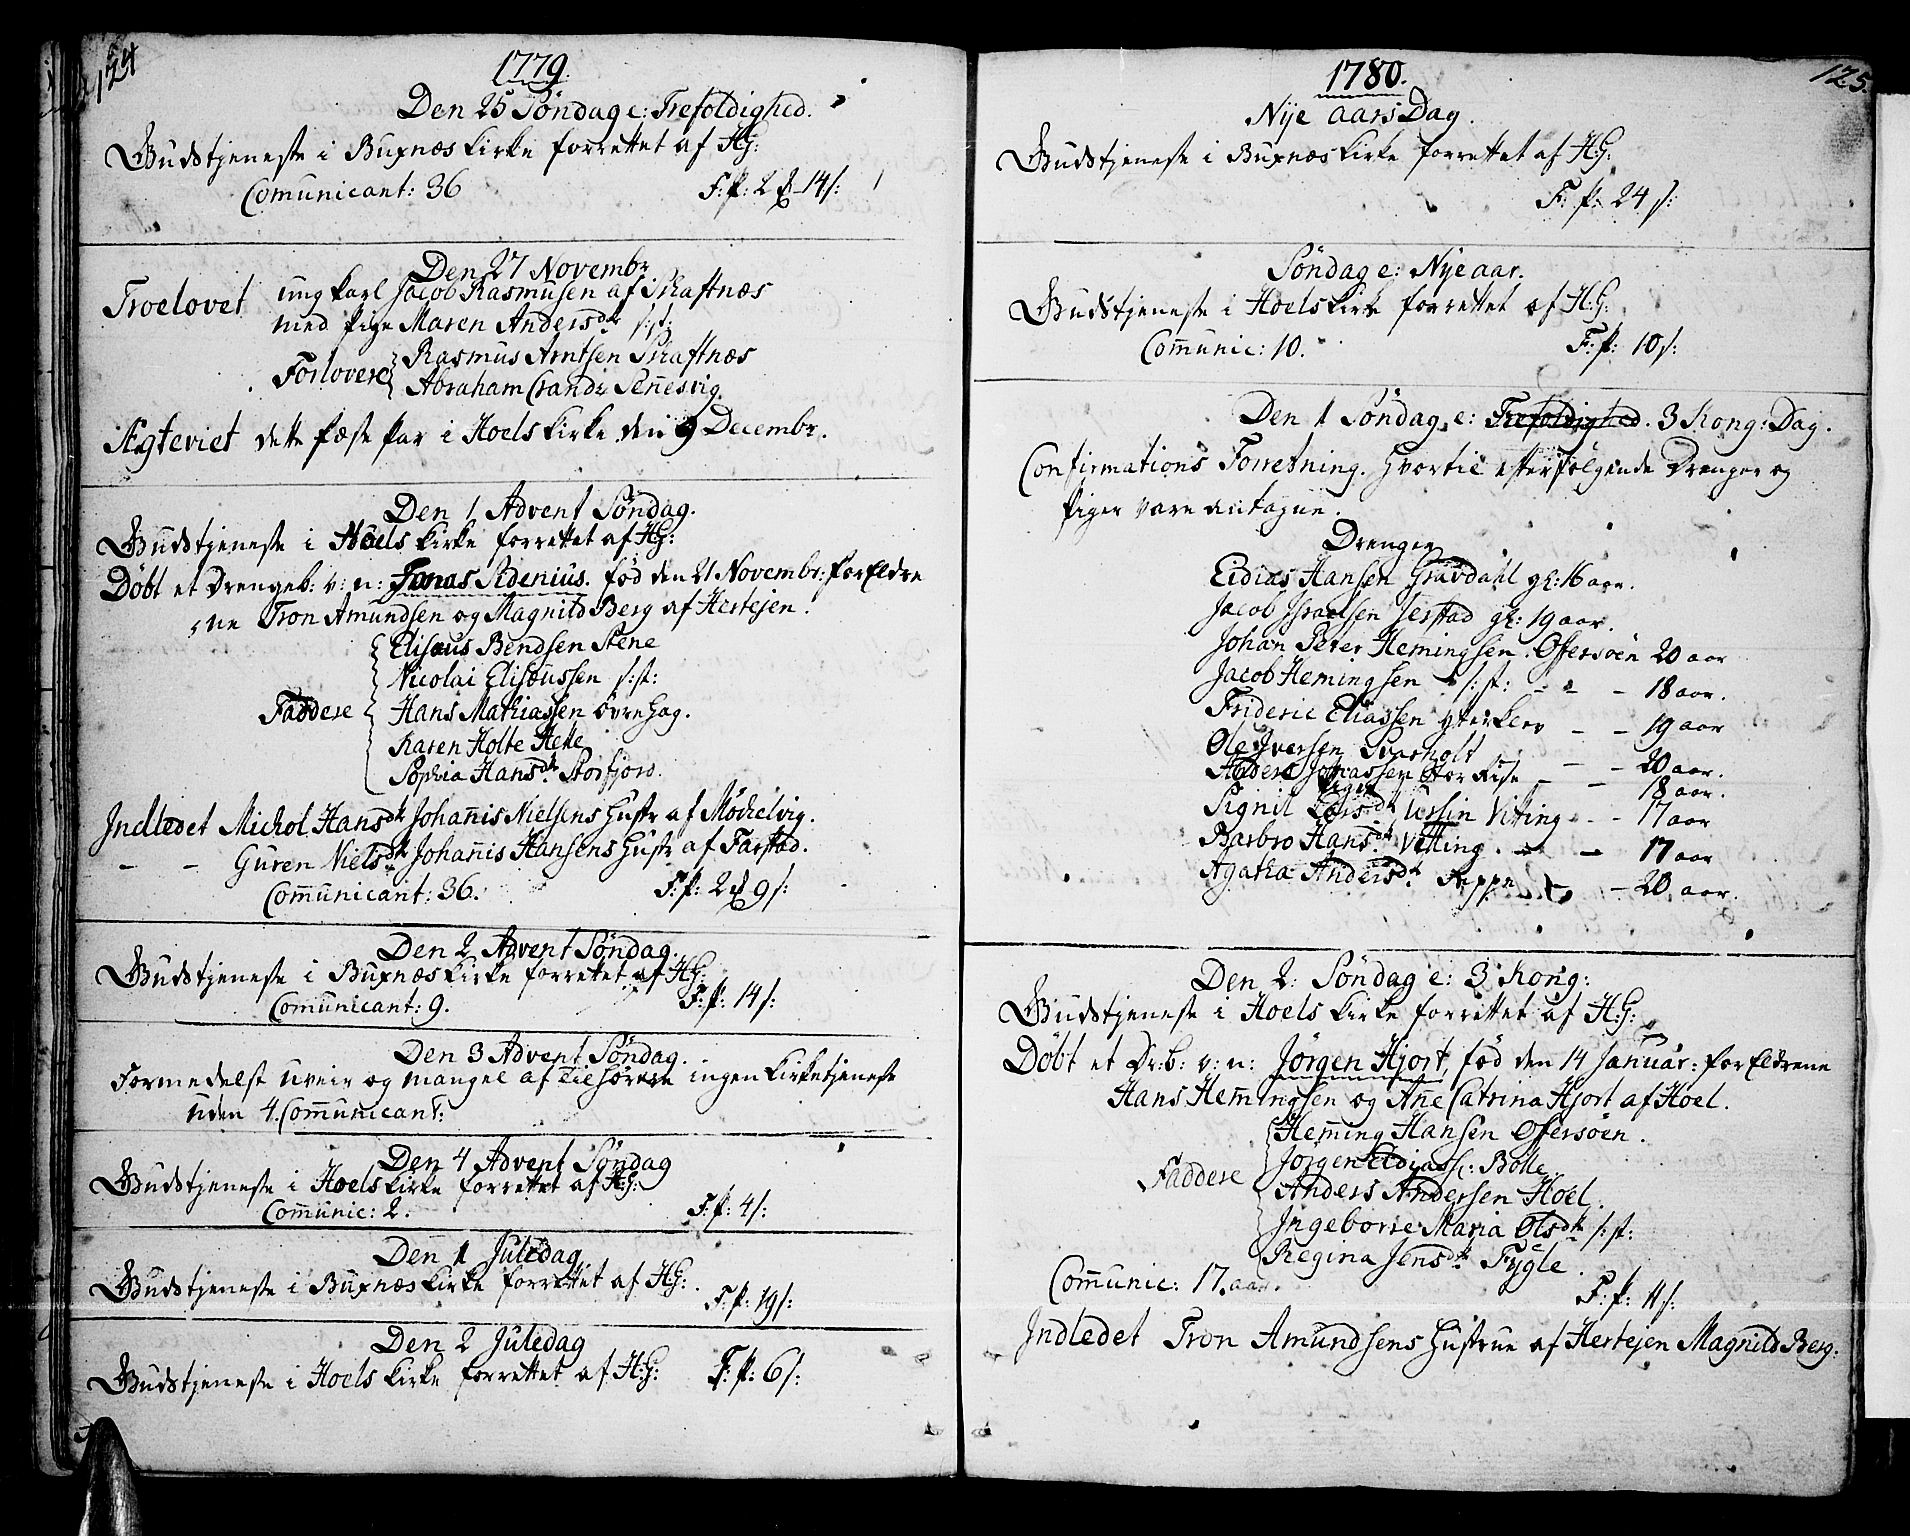 124
1779.
Den 25 Søndag e: Trefoldighed.
Gudstjeneste i Buxnæs Kirke forrettet af HG:
Comunicant: 36 F: p: 2 14 s:
Den 27 Novembr
Troelovet ung karl Jacob Rasmusen af Skaftnæs
med pige Maren Andersdtr s: st:
Forlovere Rasmus Arntsen Skaftnæs
Abraham Crandr Sennesvig.
Ægteviet dette fæste par i Hoels Kirke den 9 Decembr.
Den 1 Advent Søndag.
Gudstjeneste i Hoels Kirke forrettet af HG:
Døbt et Drengeb: v: n: Jonas Sidenius. fød den 21 Novembr: forEldre
ne Tron Amundsen og Magnild Berg af Hertejen.
Elisæus Bendsen Stene
Nicolai Elisæussen s: st:
Faddere Hans Mathiassen øvre Hag.
Karen Holte Helle
Sophia Hansdtr Storfjord.
Indledet Michol Hansdtr Johannis Nielsens Hustr af Mørkelvig.
– – Guren Nielsdtr Johannis Hansens Hustr af Farstad.
Communicant: 36. F: p: 2 9 s:
Den 2 Advent Søndag.
Gudstjeneste i Buxnæs Kirke forrettet af HG:
Comunicant: 9. F: p: 14 s:
Den 3 Advent Søndag.
Formedelst uveir og mangel af tilhørere ingen Kirketjeneste
uden 4. Communicant:
Den 4 Advent Søndag
Gudstjeneste i Hoels Kirke forrettet af H:G:
Communic: 2. F: p: 4 s:
Den 1 Juledag
Gudstjeneste i Buxnæs Kirke forrettet af HG:
F: p: 19 s:
Den 2 Juledag
Gudstjeneste i Hoels Kirke forrettet af H:G: F: p: 6 s:
125.
1780.
Nye aars Dag.
Gudstjeneste i Buxnæs Kirke forrettet af H:G:
F: p: 24 s:
Søndag e: Nyeaar.
Gudstjeneste i Hoels Kirke forrettet af H:G:
Communic: 10. F: p: 10 s:
Den 1 Søndag e: Trefoldighed. 3 Kong: Dag.
Confirmations Forretning. Hvortil efterfølgende Drenger og
piger vare antagne.
Drenger
Eidias Hansen Gravdahl gl: 16 aar.
Jacob Israelsen Lerstad gl: 19 aar.
Johan Peter Hemingsen Offersøen 20 aar
Jacob Hemingsen s: st: – – – 18 aar.
Frideric Eliassen – – 19 aar
Ole Iversen Svarholt – – 20 aar.
Anders Jonassen Stor Rise – – 18 aar.
Piger
Signil Larsdtr Verlin Vitting – – 17 aar
Barbro Hansdtr Vitting. – – 17 aar
Agatha Andersdtr Seppe – 20 aar.
Den 2: Søndag e: 3 Kong:
Gudstjeneste i Hoels Kirke forrettet af H:G:
Døbt et Dr:b: v: n: Jørgen Hjort, fød den 14 Januar: forEldrene
Hans Hemmingsen og Ane Catrina Hjort af Hoel.
Hemming Hansen Offersøen.
Jørgen Eldiass: Bolle.
Faddere Anders Andersen Hoel.
Ingeborre Maria Olsdtr s: st:
Regina Jensdtr Fygle.
Communic: 17. F: p: 11 s:
Indledet Tron Amundsens Hustrue af Hertejen Magnild Berg: